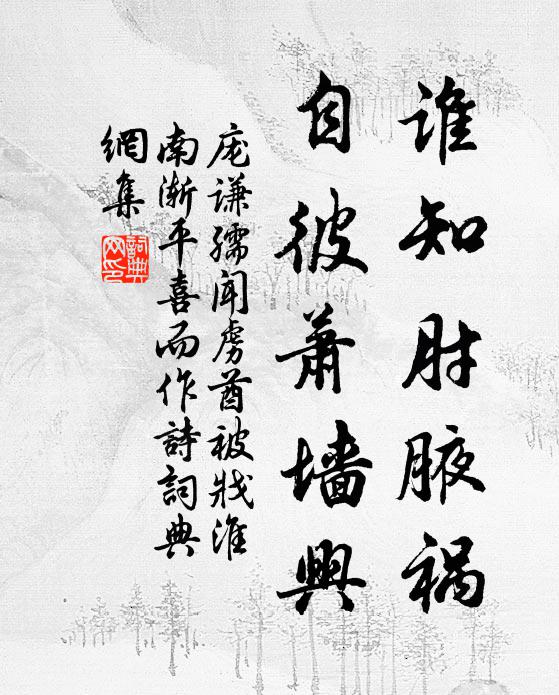 誰知肘腋禍
自彼蕭墙興
庞谦孺闻虏酋被戕淮
南渐平喜而作詩詞典
網集
詞典
网印